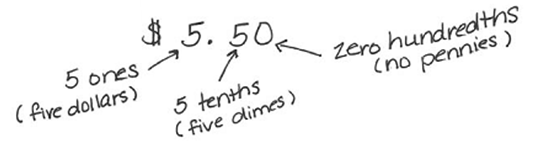 $ 5.50
5 ones
(five dollars)
5 tenths
(five dimes)
zero hundredths
(no pennies)